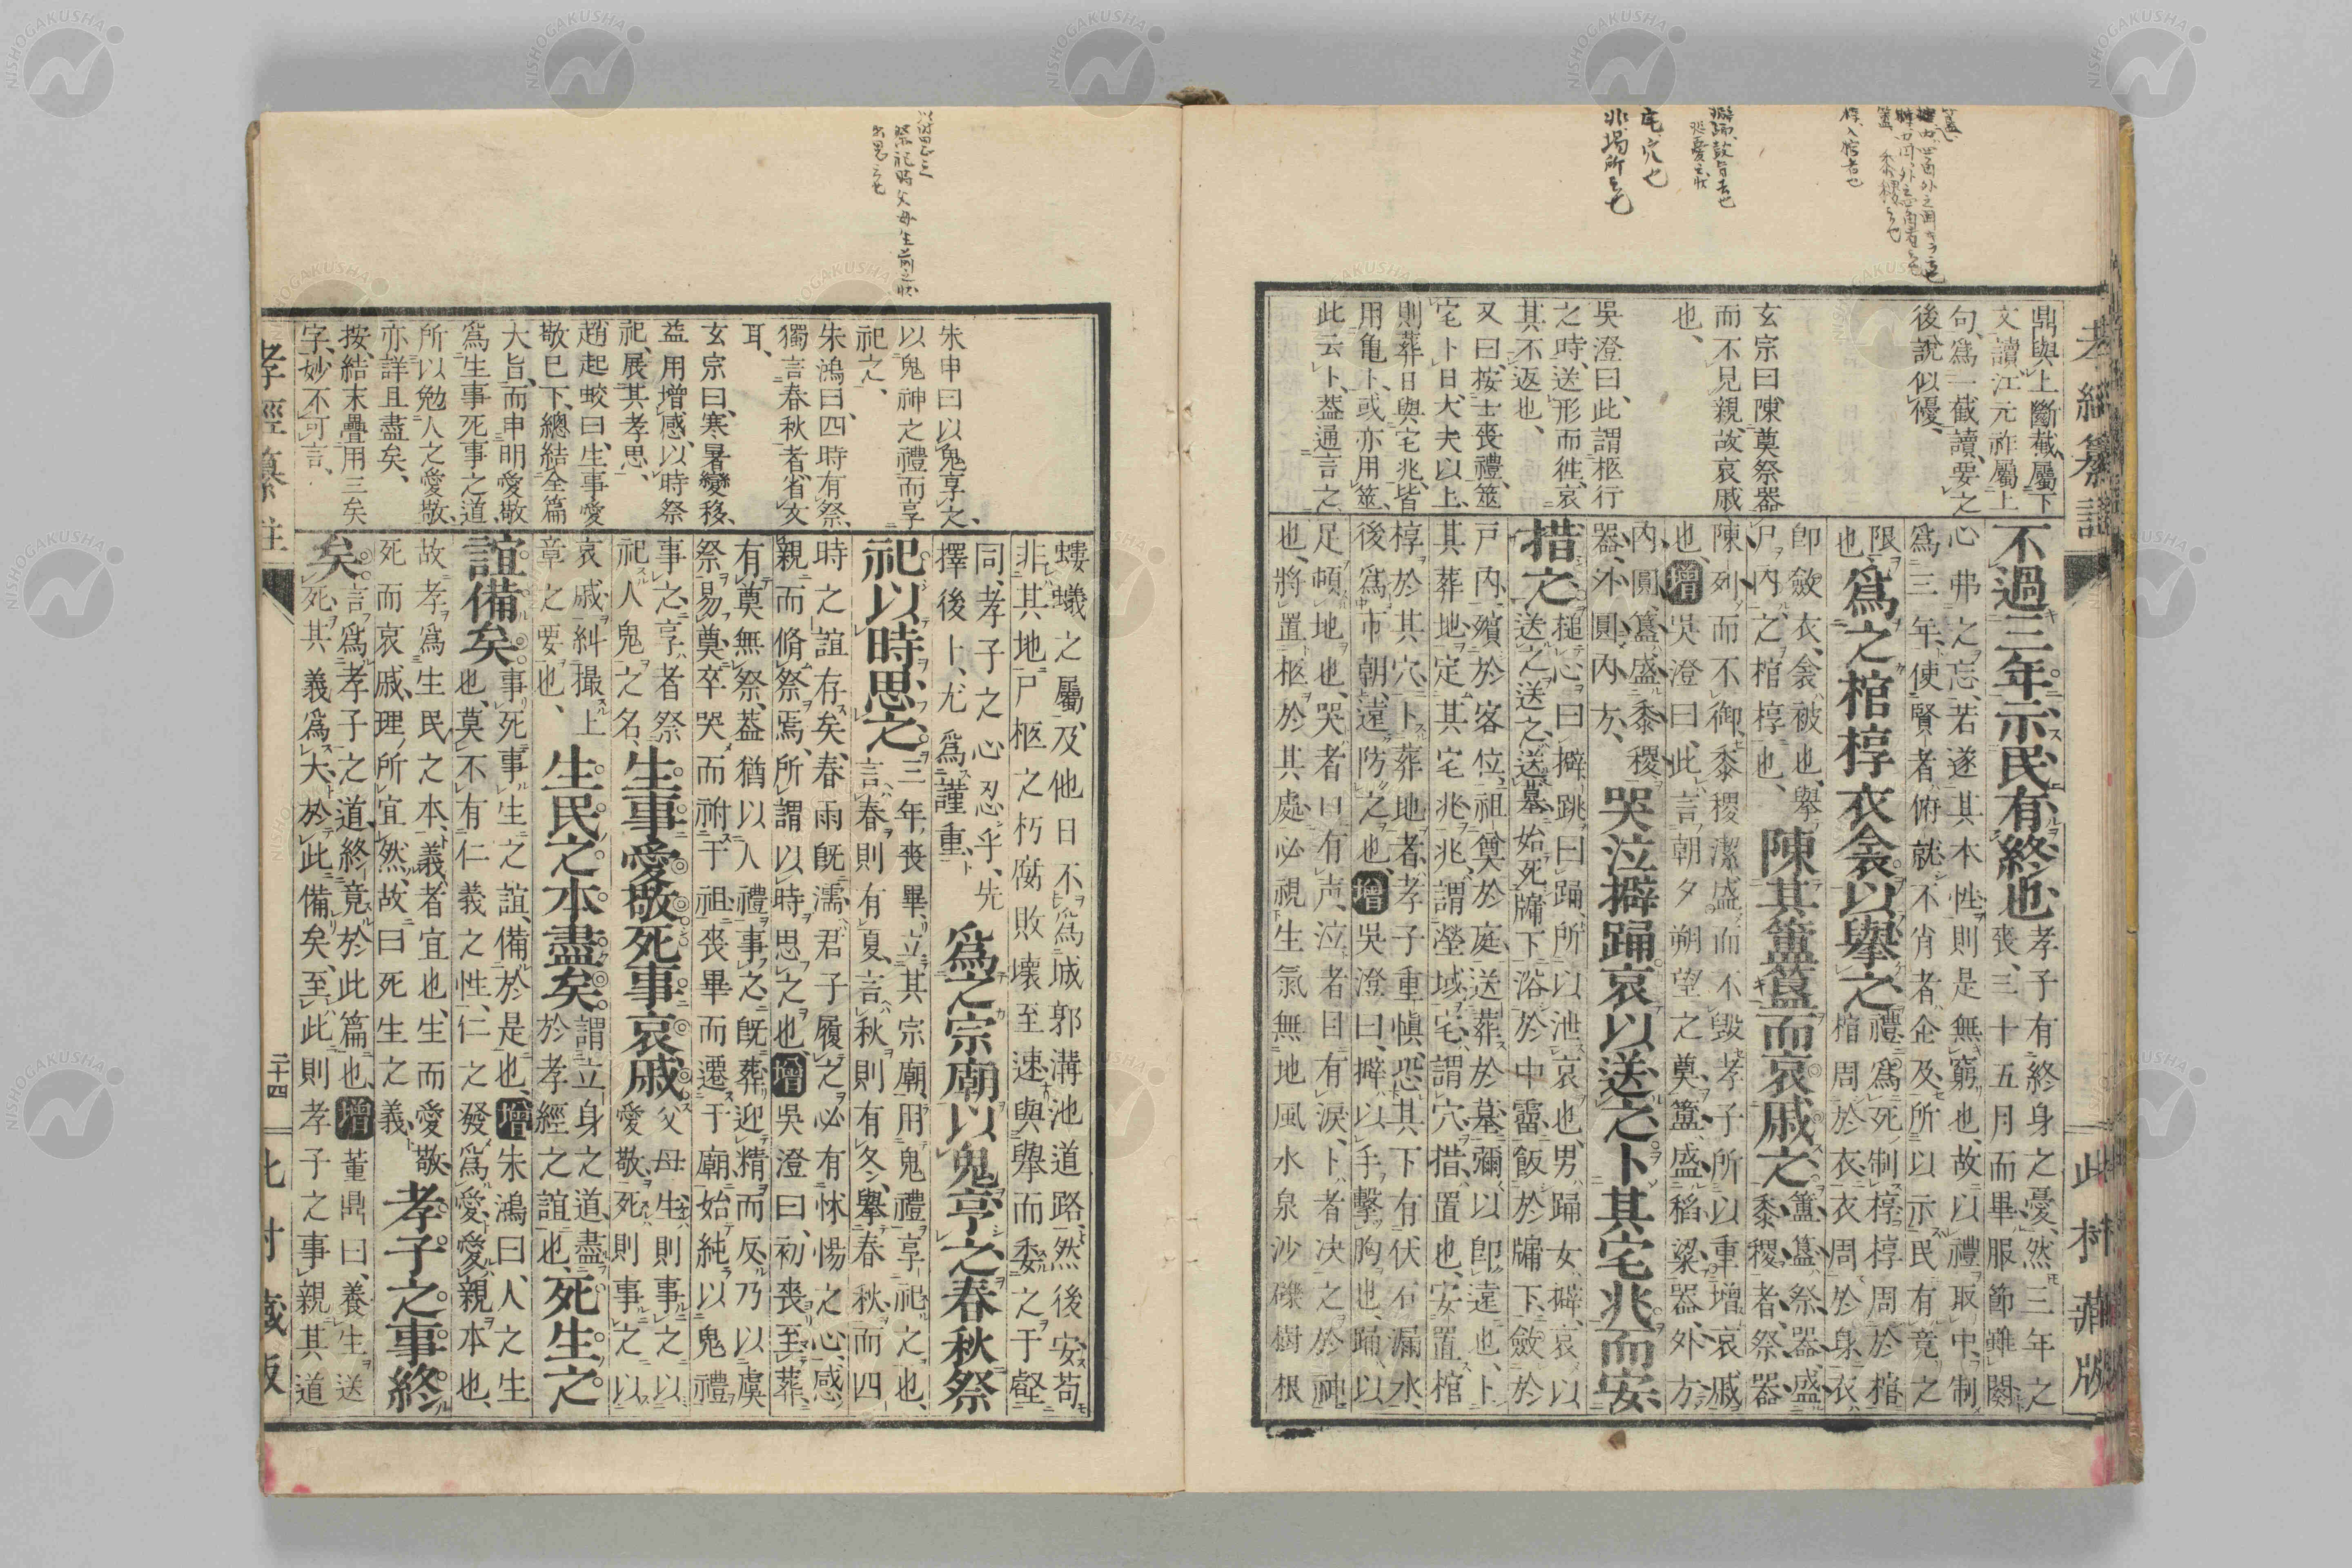 孝經纂註
此村藏版
宅、穴也
鼎與上斷截屬下
文讀、江元祚屬上
句、爲一截讀、要之
後說似優、
玄宗曰、陳奠祭器
而不見親、故哀戚
也、
吳澄曰、此謂柩行
之時、送形而徃、哀
其不返也、
又曰、按士喪禮、筮
宅卜日、大夫以上、
則葬日與宅兆、皆
用亀卜、或亦用筮、
此云卜、葢通言之
不過三年示民有終也
孝子有終身之憂、然三年之
喪、三十五月而畢服節雖闋
心弗之忘、若遂其本性、則是無窮也、故以禮取中、制
爲三年、使賢者俯就、不肖者企及、所以示民有竟之
限也、爲之棺椁衣衾以擧之
禮、爲死制椁、椁周於棺
棺周於衣、衣周於身、衣
卽斂衣、衾被也、擧
尸內之棺椁也、
陳其簠簋而哀戚之
簠簋、祭器、盛
黍稷者、祭器
陳列而不御、黍稷潔盛而不毀、孝子所以重增哀戚
也、增吳澄曰、此言朝夕朔望之奠、簠盛稻粱器、外方
內圓、簋盛黍稷
器、外圓內方、
哭泣擗踊哀以送之卜其宅兆而安
措之
槌心曰擗跳曰踊、所以泄哀也、男踊女擗、哀以
送之送之、送墓、始死牖下浴於中霤、飯於牖下、斂於
戶內、殯於客位、祖奠於庭、送葬於墓、彌以卽遠也、卜
其葬地、定其宅兆、兆謂塋域、宅謂穴、措置也、安置棺
椁於其穴、卜葬地者、孝子重愼、恐其下有伏石漏水、
後爲市朝、遠防之也、增吳澄曰、擗以手擊胸也、踊以
足頓地也、哭者口有声、泣者目有淚、卜者决之於神
也、將置柩於其處、必視生氣無地風水泉沙礫樹根
祭祀時父母生前之狀
朱申曰、以鬼享之、
以鬼神之禮而享
祀之、
朱鴻曰、四時有祭、
獨言春秋者、省文
耳、
玄宗曰、寒暑變移、
益用增感、以時祭
祀、展其孝思、
趙起蛟曰、生事愛
敬已下、總結全篇
大旨、而申明愛敬
爲生事死事之道、
所以勉人之愛敬、
亦詳且盡矣、
按、結末疊用三矣
字、妙不可言、
螻蟻之屬、及他日不爲城郭溝池道路、然後安、苟
非其地、尸柩之朽腐敗壞至速、與擧而委之于壑
同、孝子之心忍乎、先
擇後卜、尤爲謹重、
爲之宗廟以鬼享之春秋祭
祀以時思之
三年喪畢、立其宗廟、用鬼禮享祀之也、
言春則有夏、言秋則有冬、擧春秋而四
時之誼存矣、春雨旣濡、君子履之、必有怵惕之心、感
親而脩祭焉、所謂以時思之也、增吳澄曰、初喪至葬、
有奠無祭、葢猶以人禮事之、旣葬迎精而反、乃以虞
祭易奠、卒哭而祔于祖、喪畢而遷于廟、始純以鬼禮
事之、享者祭
祀人鬼之名、
生事愛敬死事哀戚
父母生則事之以
愛敬、死則事之以
哀戚、糾撮上
章之要也、
生民之本盡矣
謂立身之道、盡
於孝經之誼也、
死生之
誼備矣
事死事生之誼、備於是也、增朱鴻曰、人之生
也、莫不有仁義之性、仁之發爲愛、愛親本也、
故孝爲生民之本、義者宜也、生而愛敬、
死而哀戚、理所宜然、故曰死生之義、
孝子之事終
矣
言爲孝子之道、終竟於此篇也、增董鼎曰、養生送
死、其義爲大、於此備矣、至此則孝子之事親其道
孝經纂註
二十四
此村藏版